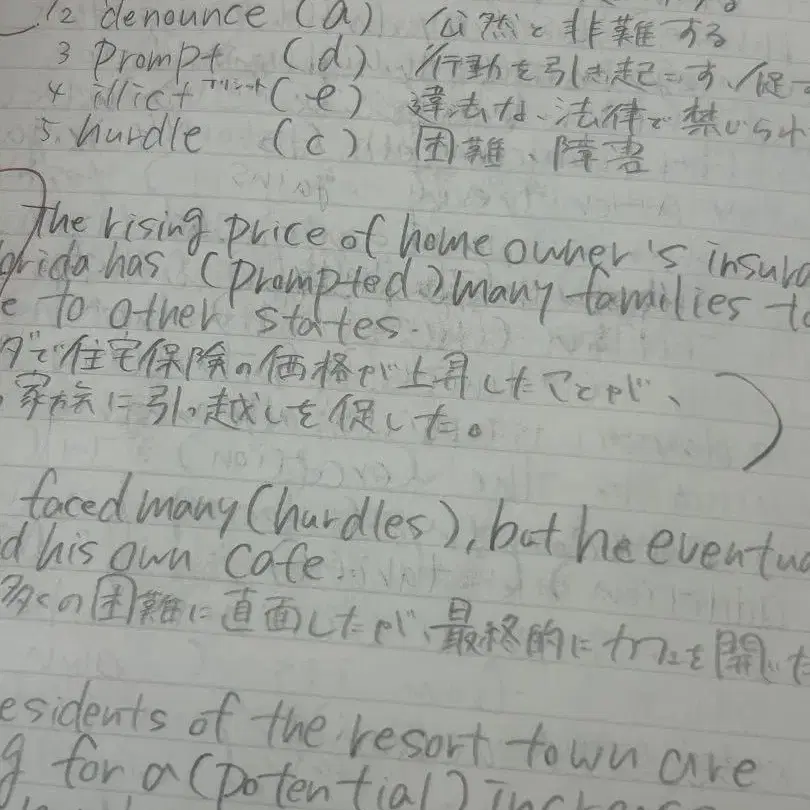 2 denounce (a) 公然と非難する
3 Prompt (d) 行動を引き起こす、促す
4 illict イリシット (e) 違法な、法律で禁じられ
5. hurdle (c) 困難、障害
The rising price of home owner's insura
orida has (Prompted) many families to
e to other states.
ダで住宅保険の価格が上昇したことが、
家族に引っ越しを促した。
faced many (hurdles), but he eventua
d his own cafe.
多くの困難に直面したが、最終的にカフェを開いた
esidents of the resort town are
g for a (potential)